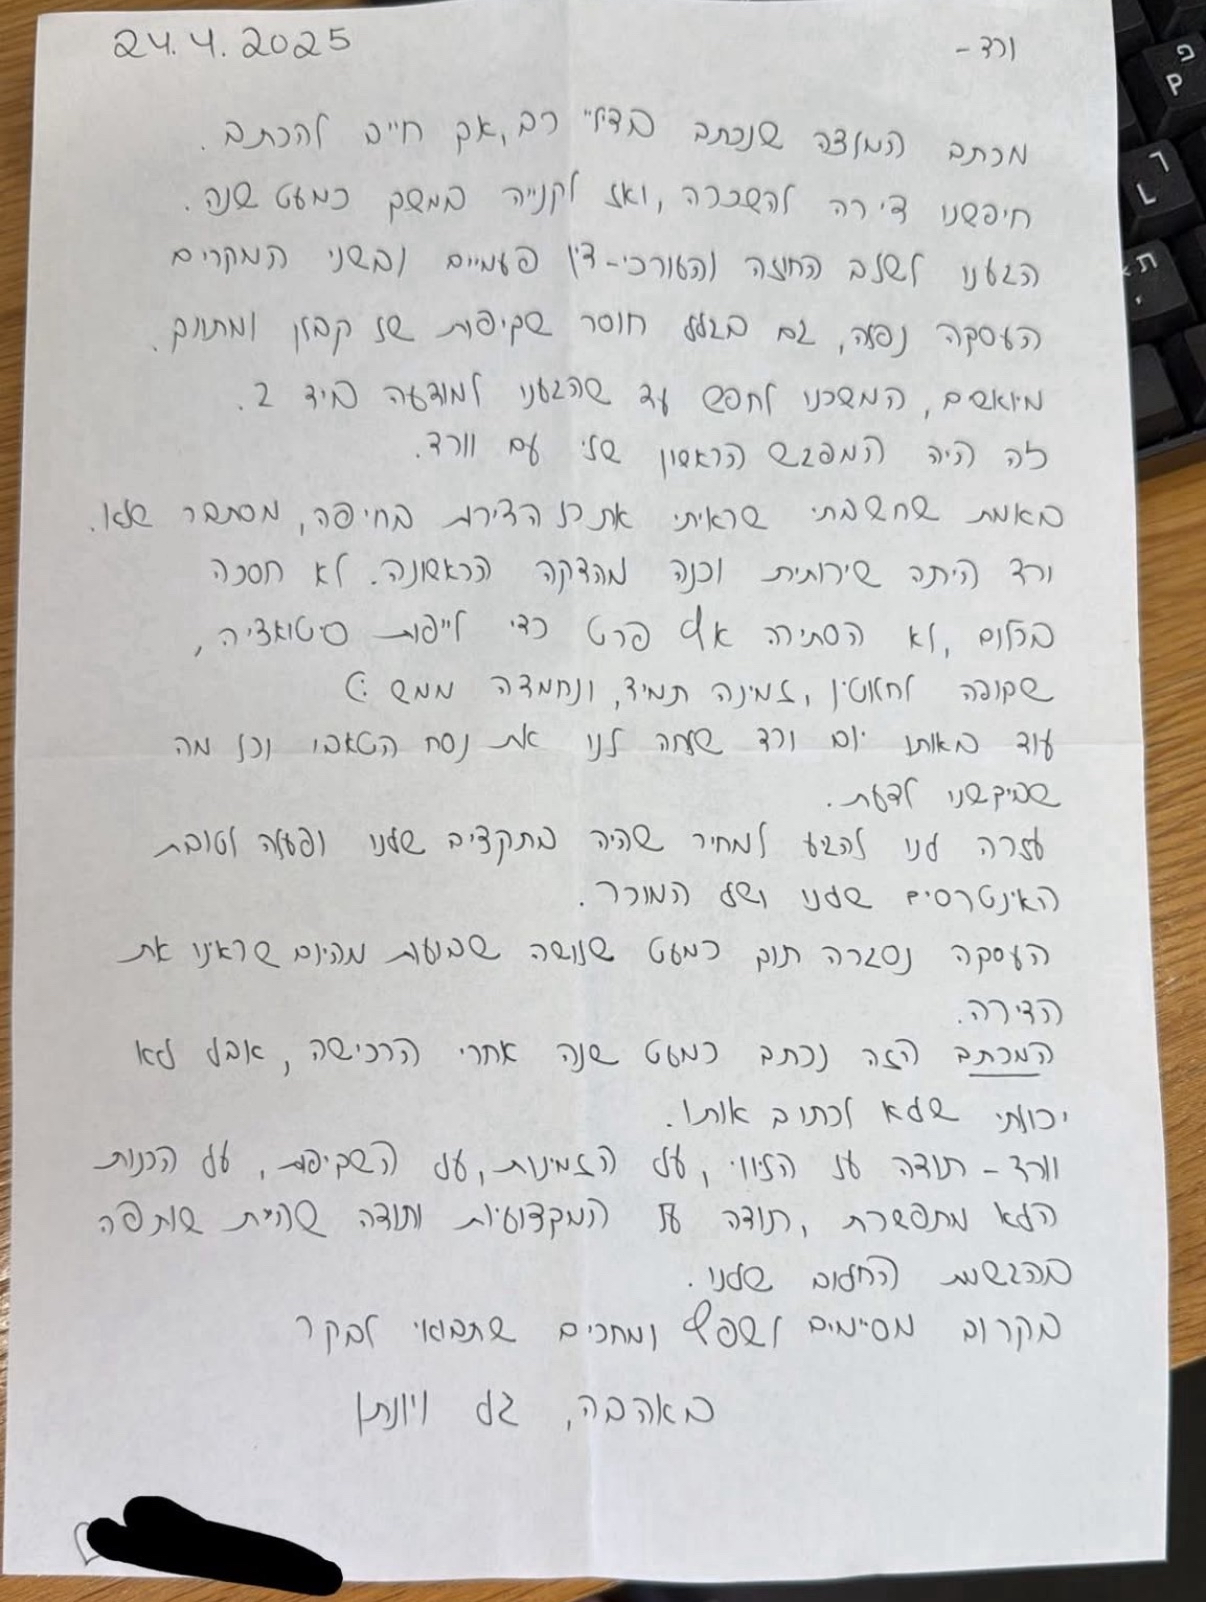 24.4.2025
ורד -
מכתב המלצה שנכתב בדיליי רב, אך חייב להכתב.
חיפשנו דירה להשכרה, ואז לקנייה במשך כמעט שנה.
הגענו לשלב החוזה והעורכי-דין פעמיים ובשני המקרים
העסקה נפלה, גם בגלל חוסר שקיפות של קבלן ומתווך.
מיואשים, המשכנו לחפש עד שהגענו למודעה ביד 2.
זה היה המפגש הראשון שלי עם וורד.
באמת שחשבתי שראיתי את כל הדירות בחיפה, מסתבר שלא.
ורד היתה שירותית וכנה מהדקה הראשונה. לא חסכה
בכלום, לא הסתירה אף פרט כדי לייפות סיטואציה,
שקופה לחלוטין, זמינה תמיד, ונחמדה ממש :)
עוד באותו יום ורד שלחה לנו את נסח הטאבו וכל מה
שביקשנו לדעת.
עזרה לנו להגיע למחיר שהיה בתקציב שלנו ופעלה לטובת
האינטרסים שלנו ושל המוכר.
העסקה נסגרה תוך כמעט שלושה שבועות מהיום שראינו את
הדירה.
המכתב הזה נכתב כמעט שנה אחרי הרכישה, אבל לא
יכולתי שלא לכתוב אותו.
וורד - תודה על הליווי, על הזמינות, על השקיפות, על הכנות
הלא מתפשרת, תודה על המקצועיות ותודה שהיית שותפה
בהגשמת החלום שלנו.
בקרוב מסיימים לשפץ ומחכים שתבואי לבקר
באהבה, גל ויונתן